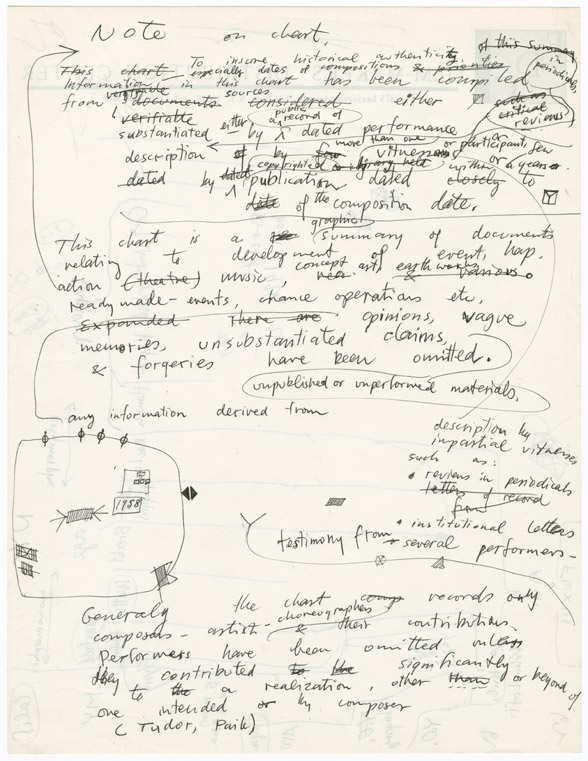 Note on chart.
To insure historical authenticity of this summary
in periodicals,
This chart especially dates of compositions & 
Information in this chart has been compiled
verifiable sources
from documents considered either
such as critical reviews
verifiable either public record of
substantiated by a dated performance
more than one or participant, few
description of by few witness
or a year
copyrighted
dated by dated publication dated closely to
date of the composition date.
graphic
This chart is a summary of documents
relating to development of event, hap.
action (theatre) music, concept art, earthworks, & various.
ready made-events, chance operations etc.
Expanded There are opinions, vague
memories, unsubstantiated claims,
& forgeries have been omitted.
unpublished or unperformed materials,
any information derived from
description by
impartial witnesses
such as:
reviews in periodicals
letters of record
from
1958
institutional letters
testimony from several performers-
Generaly the chart comp records only
choreographers
composers - artist - & their contribution.
Performers have been omitted unless
they contributed to the significantly
to the a realization, other than or beyond of
one intended or by composer
(Tudor, Paik)